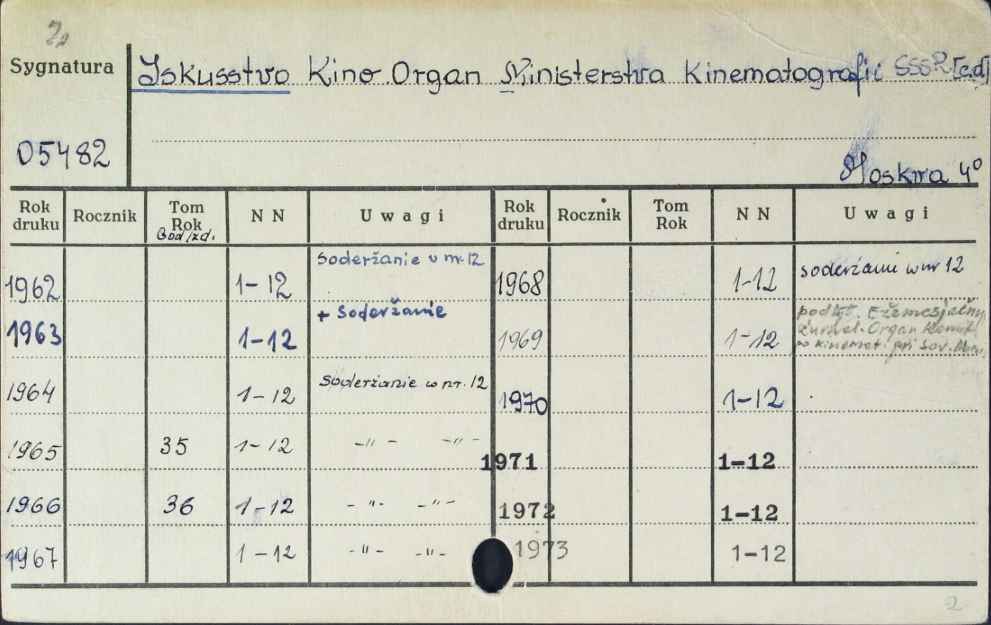 2.
Sygnatura Iskusstvo Kino. Organ Ministerstva Kinematografii SSSR [c.d]
05482
Moskwa 4°
Rok druku Rocznik Tom Rok NN Uwagi Rok druku Rocznik Tom Rok NN Uwagi
God izd.
1962 1-12 Soderžanie v nr. 12 1968 1-12 soderžanie w nr 12
1963 1-12 + Soderžanie 1969 1-12 podtyt. Ežemesjačnyj
žurnal. Organ
kinemat. pri Sov. Min.
1964 1-12 Soderżanie w nr. 12 1970 1-12
1965 35 1-12 -"- -"- 1971 1-12
1966 36 1-12 -"- -"- 1972 1-12
1967 1-12 -"- -"- 1973 1-12
2